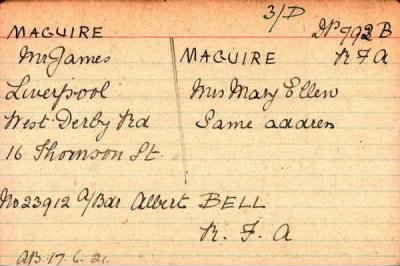 3/D
DP 792 B
R F A
MAGUIRE
Mr James
Liverpool
West Derby Rd
16 Thomson St.
MAGUIRE
Mrs Mary Ellen
Same address
No 23912 A/Bdr Albert BELL
R. F. A
AB. 17. 6. 21.